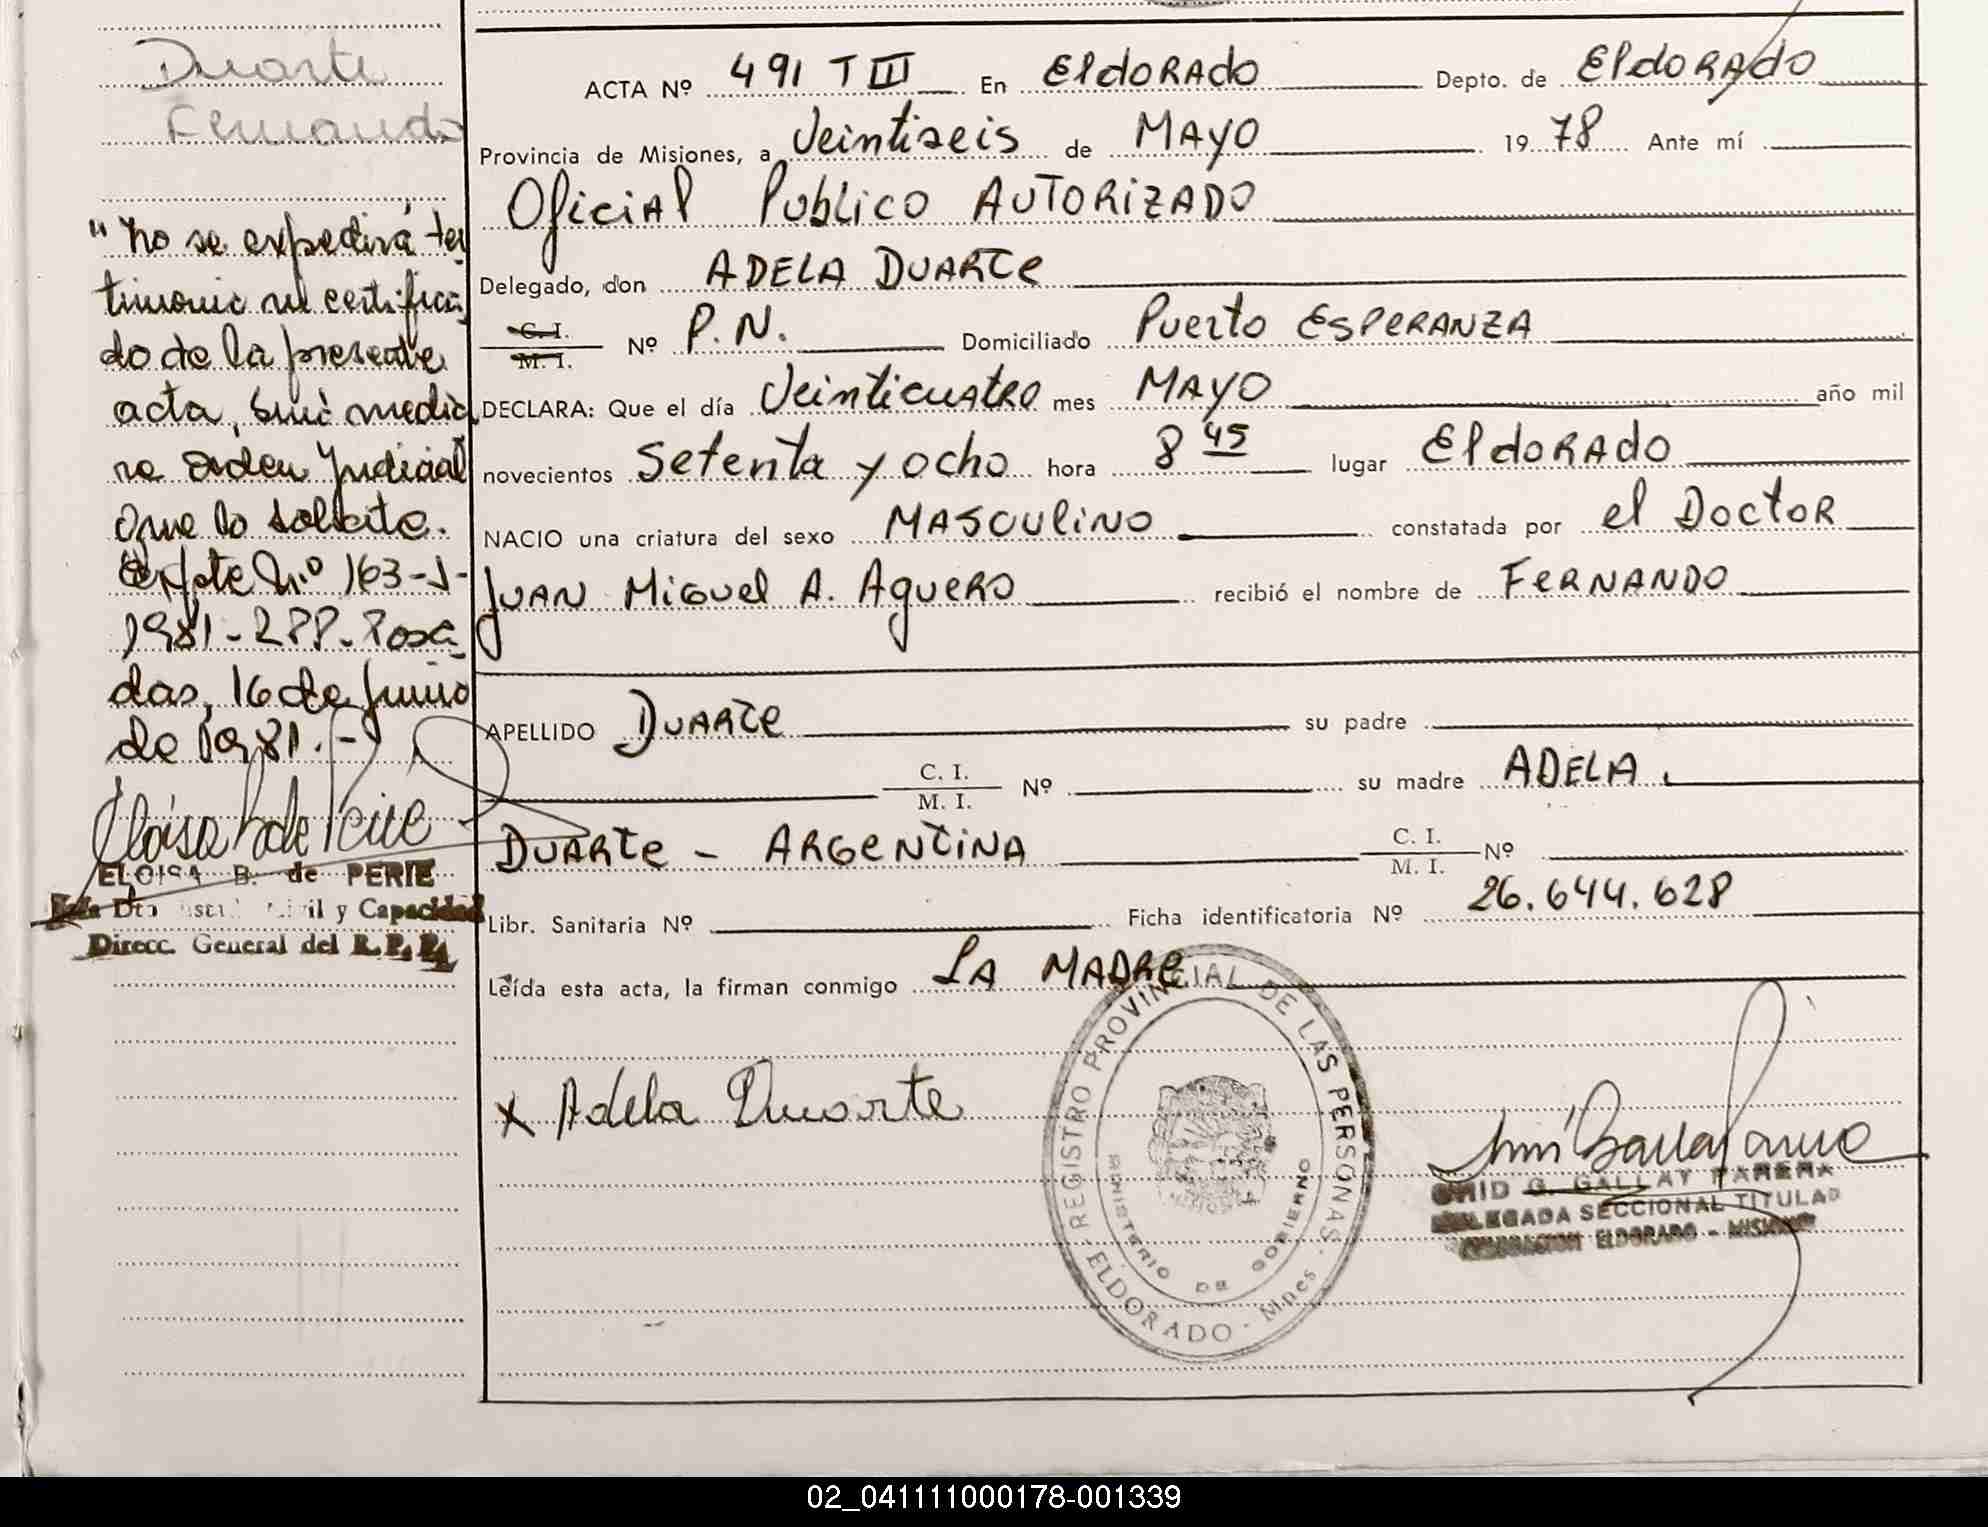 Duarte
Fernando
"No se expedirá tes
timonio ni certifica
do de la presente
acta, sin medi
orden Judicial
que lo solicite.
Expte N.º 163-J-
1981- Posa
das, 16 de Junio
de 1981.-
ELOISA B. de PERIE
Civil y Capacidad
Direcc. General del R. P. P.
ACTA Nº 491 T III En ElDORADO Depto. de ElDORADO
Provincia de Misiones, a Veintiseis de MAYO 19 78 Ante mí
Oficial Publico AUTORIZADO
Delegado, don ADELA DUARTE
C. I.
M. I. Nº P.N. Domiciliado Puerto ESPERANZA
DECLARA: Que el día Veinticuatro mes MAYO año mil
novecientos Setenta y ocho hora 8 45 lugar ElDORADO
NACIO una criatura del sexo MASCULINO constatada por el DOCTOR
JUAN Miguel A. Aguero recibió el nombre de FERNANDO
APELLIDO DUARTE su padre
C. I.
M. I. Nº su madre ADELA
DUARTE - ARGENTINA C. I.
M. I. Nº
Libr. Sanitaria Nº Ficha identificatoria Nº 26.644.628
Leída esta acta, la firman conmigo LA MADRE
x Adela Duarte
REGISTRO PROVINCIAL DE LAS PERSONAS
MINISTERIO DE GOBIERNO
ELDORADO - Mnes
G. GALLAY PARERA
DELEGADA SECCIONAL TITULAR
DELEGACION ELDORADO - MISIONES
02_041111000178-001339